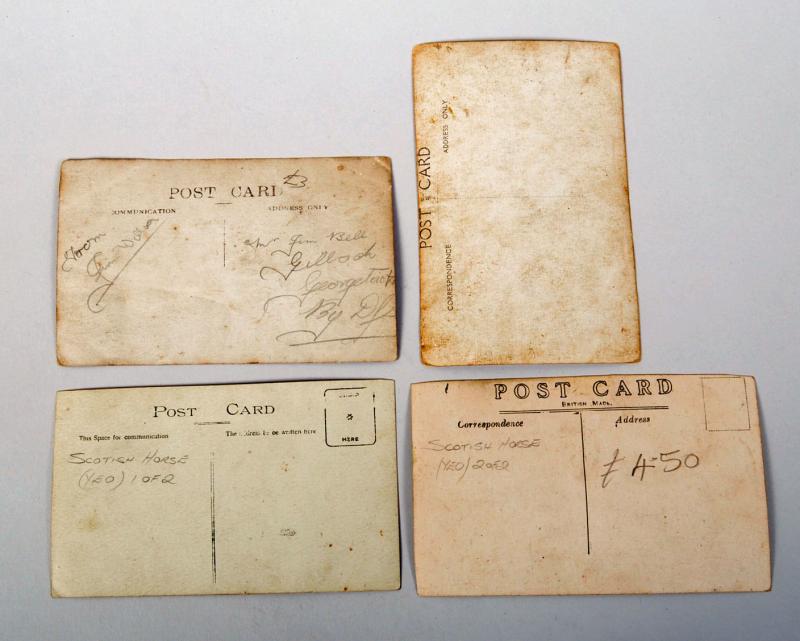 POST CARD
£3
COMMUNICATION
ADDRESS ONLY
From
Jim
Mr Jim Bell
Georgetown
By
POST CARD
CORRESPONDENCE
ADDRESS ONLY
POST CARD
This Space for communication
The address to be written here
HERE
SCOTISH HORSE
(YEO) 1 OF 2
POST CARD
BRITISH MADE.
Correspondence
Address
SCOTISH HORSE
(YEO) 2 OF 2
£ 4-50